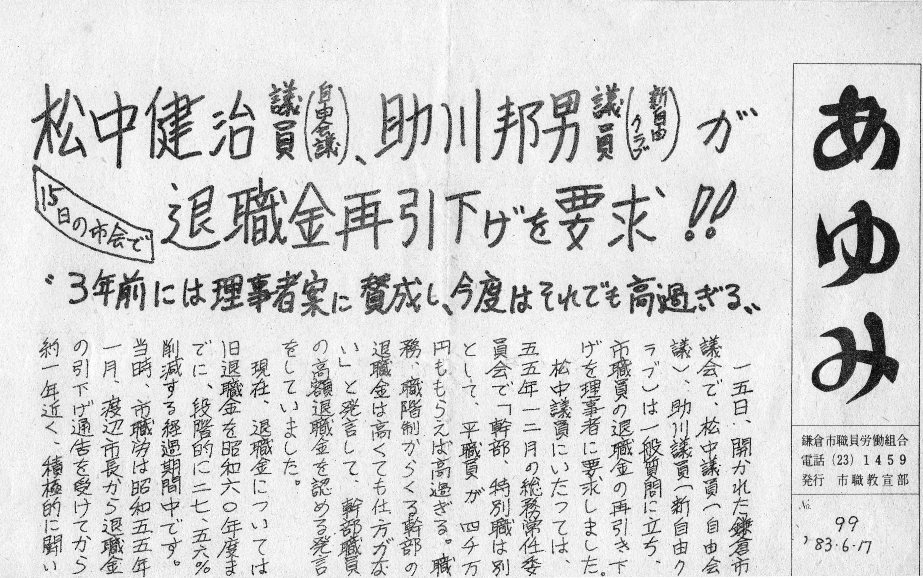 あゆみ
鎌倉市職員労働組合
電話(23)1459
発行 市職教宣部
No. 99
'83.6.17
松中健治議員(自由会議)、助川邦男議員(新自由クラブ)が
15日の市会で
退職金再引下げを要求!!
〝3年前には理事者案に賛成し、今度はそれでも高過ぎる〟
一五日、開かれた鎌倉市
議会で、松中議員(自由会
議)、助川議員(新自由ク
ラブ)は一般質問に立ち、
市職員の退職金の再引き下
げを理事者に要求しました。
松中議員にいたっては、
五五年一二月の総務常任委
員会で「幹部、特別職は別
として、平職員が四千万
円ももらえば高過ぎる。職
務、職階制からくる幹部の
退職金は高くても仕方がな
い」と発言して、幹部職員
の高額退職金を認める発言
をしていました。
現在、退職金については
旧退職金を昭和六〇年度ま
でに、段階的に二七、五六%
削減する経過期間中です。
当時、市職労は昭和五五年
一月、渡辺市長から退職金
の引下げ通告を受けてから
約一年近く、積極的に闘い